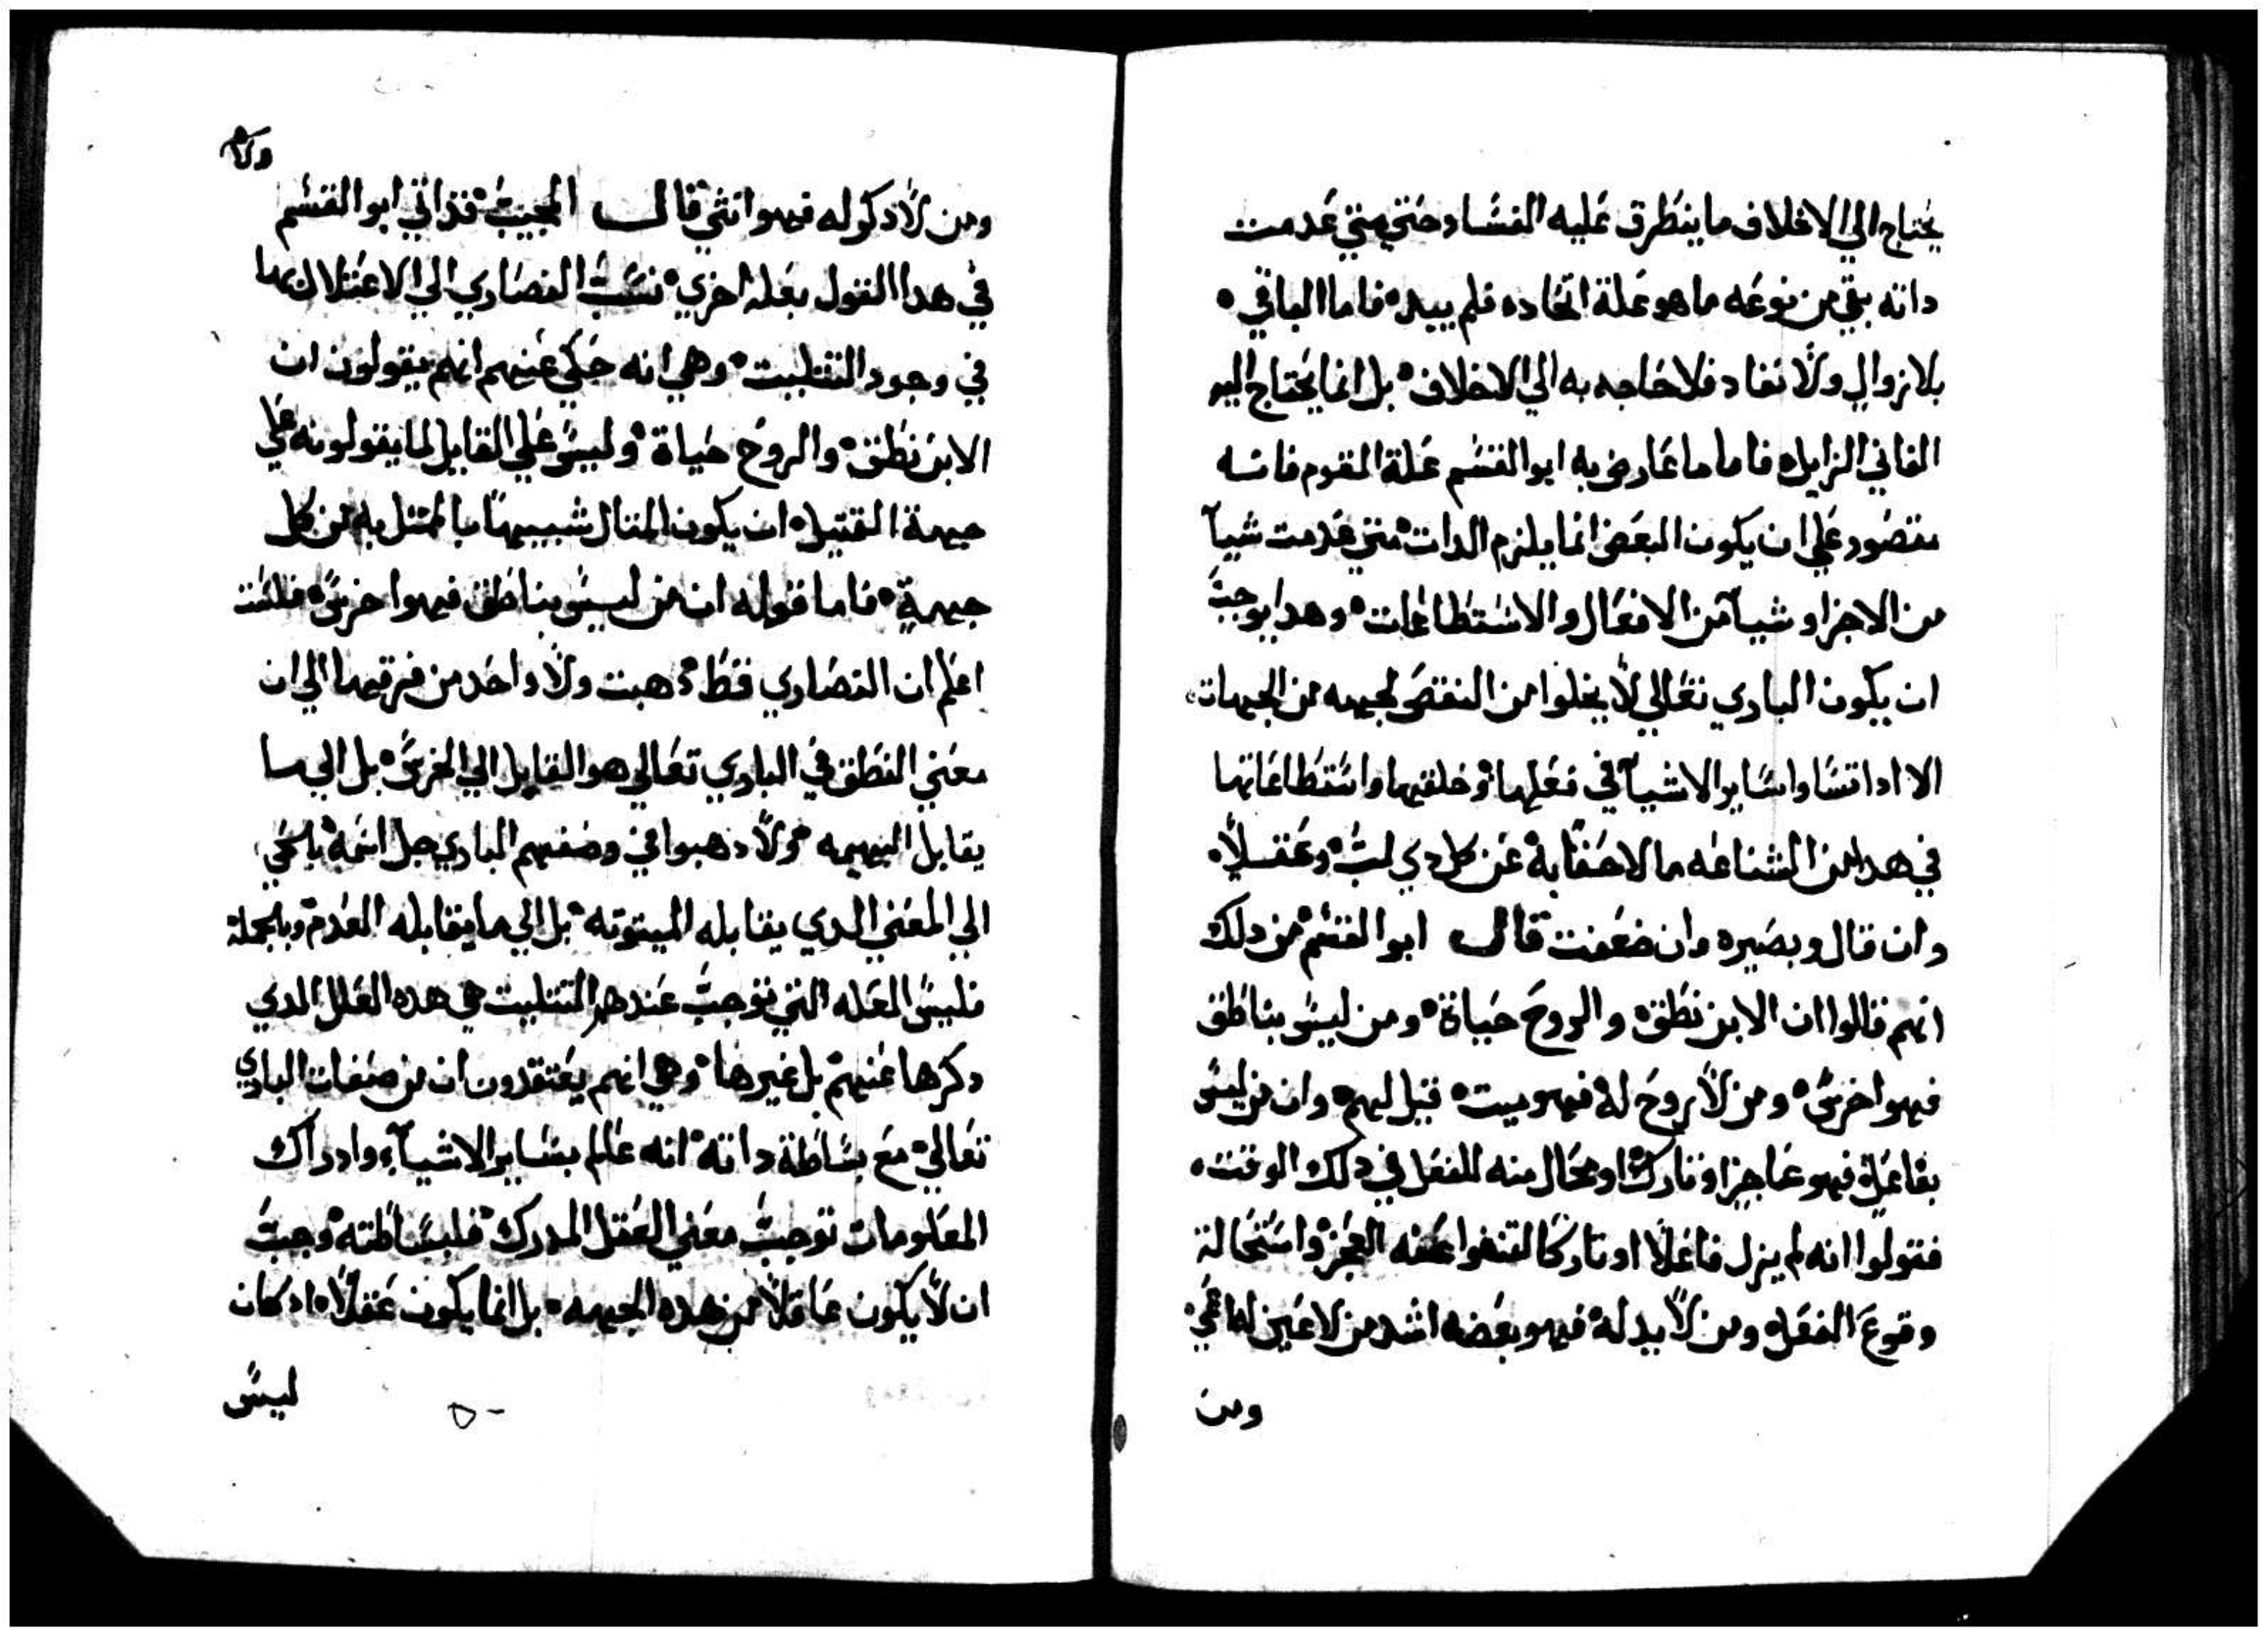 يحتاج الي الاخلاف ما يتطرق عليه الفساد حتي متي عدمت
داته بقي من نوعه ما هو علة اتخاده فلم يبيد فاما الباقي
بلا زوال ولا نفاد فلا حاجه به الي الاخلاف بل انما يحتاج اليه
الفاني الزايل فاما ما عارض به ابو القسم علة القوم فانه
مقصور علي ان يكون البعض انما يلزم الدات متي عدمت شياً
من الاجزا و شياً من الافعال والاستطاعات وهدا يوجب
ان يكون الباري تعالي لا يخلوا من النقص لجهه من الجهات
الا ادا تساوا ساير الاشيآ في فعلها وخلقها واستطاعاتها
في هدا من الشناعه ما لا خفا به عن كل دي لب وعقلاً
وان قال وبصيره وان ضعفت قال ابو القسم من دلك
انهم قالوا ان الابن نطق والروح حياة ومن ليس بناطق
فهو اخرس ومن لا روح له فهو ميت قيل لهم وان من ليس
بفاعل فهو عاجز او تارك او محال منه الفعل في دلك الوقت
فقولوا انه لم يزل فاعلاً او تاركا لتنفوا عنه العجز واستحالة
وقوع الفعل ومن لا يد له فهو بعضه اشد من لا عين له اعمي
ومن
ولا
ومن لا دكر له فهو انثي قال المجيب قد اتي ابو القسم
في هدا القول بعله اخري نسب النصاري الي الاعتلال بها
في وجود التثليت وهي انه حكي عنهم انهم يقولون ان
الابن نطق والروح حياة وليس علي القايل لما يقولونه علي
جهة التمتيل ان يكون المتال شبيهاً بالممتل به من كل
جهة فاما قوله ان من ليس بناطق فهو اخرس فلست
اعلم ان النصاري قط دهبت ولا واحد من فرقها الي ان
معني النطق في الباري تعالي هو القابل الي الخرس بل الي ما
يقابل البهيمه ولا دهبوا في وصفهم الباري جل اسمه بالحي
الي المعني الدي يقابله الميتوته بل الي ما يقابله العدم وبالجملة
فليس العله التي توجب عندهم التتليت هي هده العلل الدي
دكرها عنهم بل غيرها وهي انهم يعتقدون ان من صفات الباري
تعالي مع بساطة داته انه عالم بساير الاشيآء وادراك
المعلومات توجب معني العقل المدرك فلبساطته وجب
ان لا يكون عاقلاً من هده الجهه بل انما يكون عقلاً اد كان
ليس